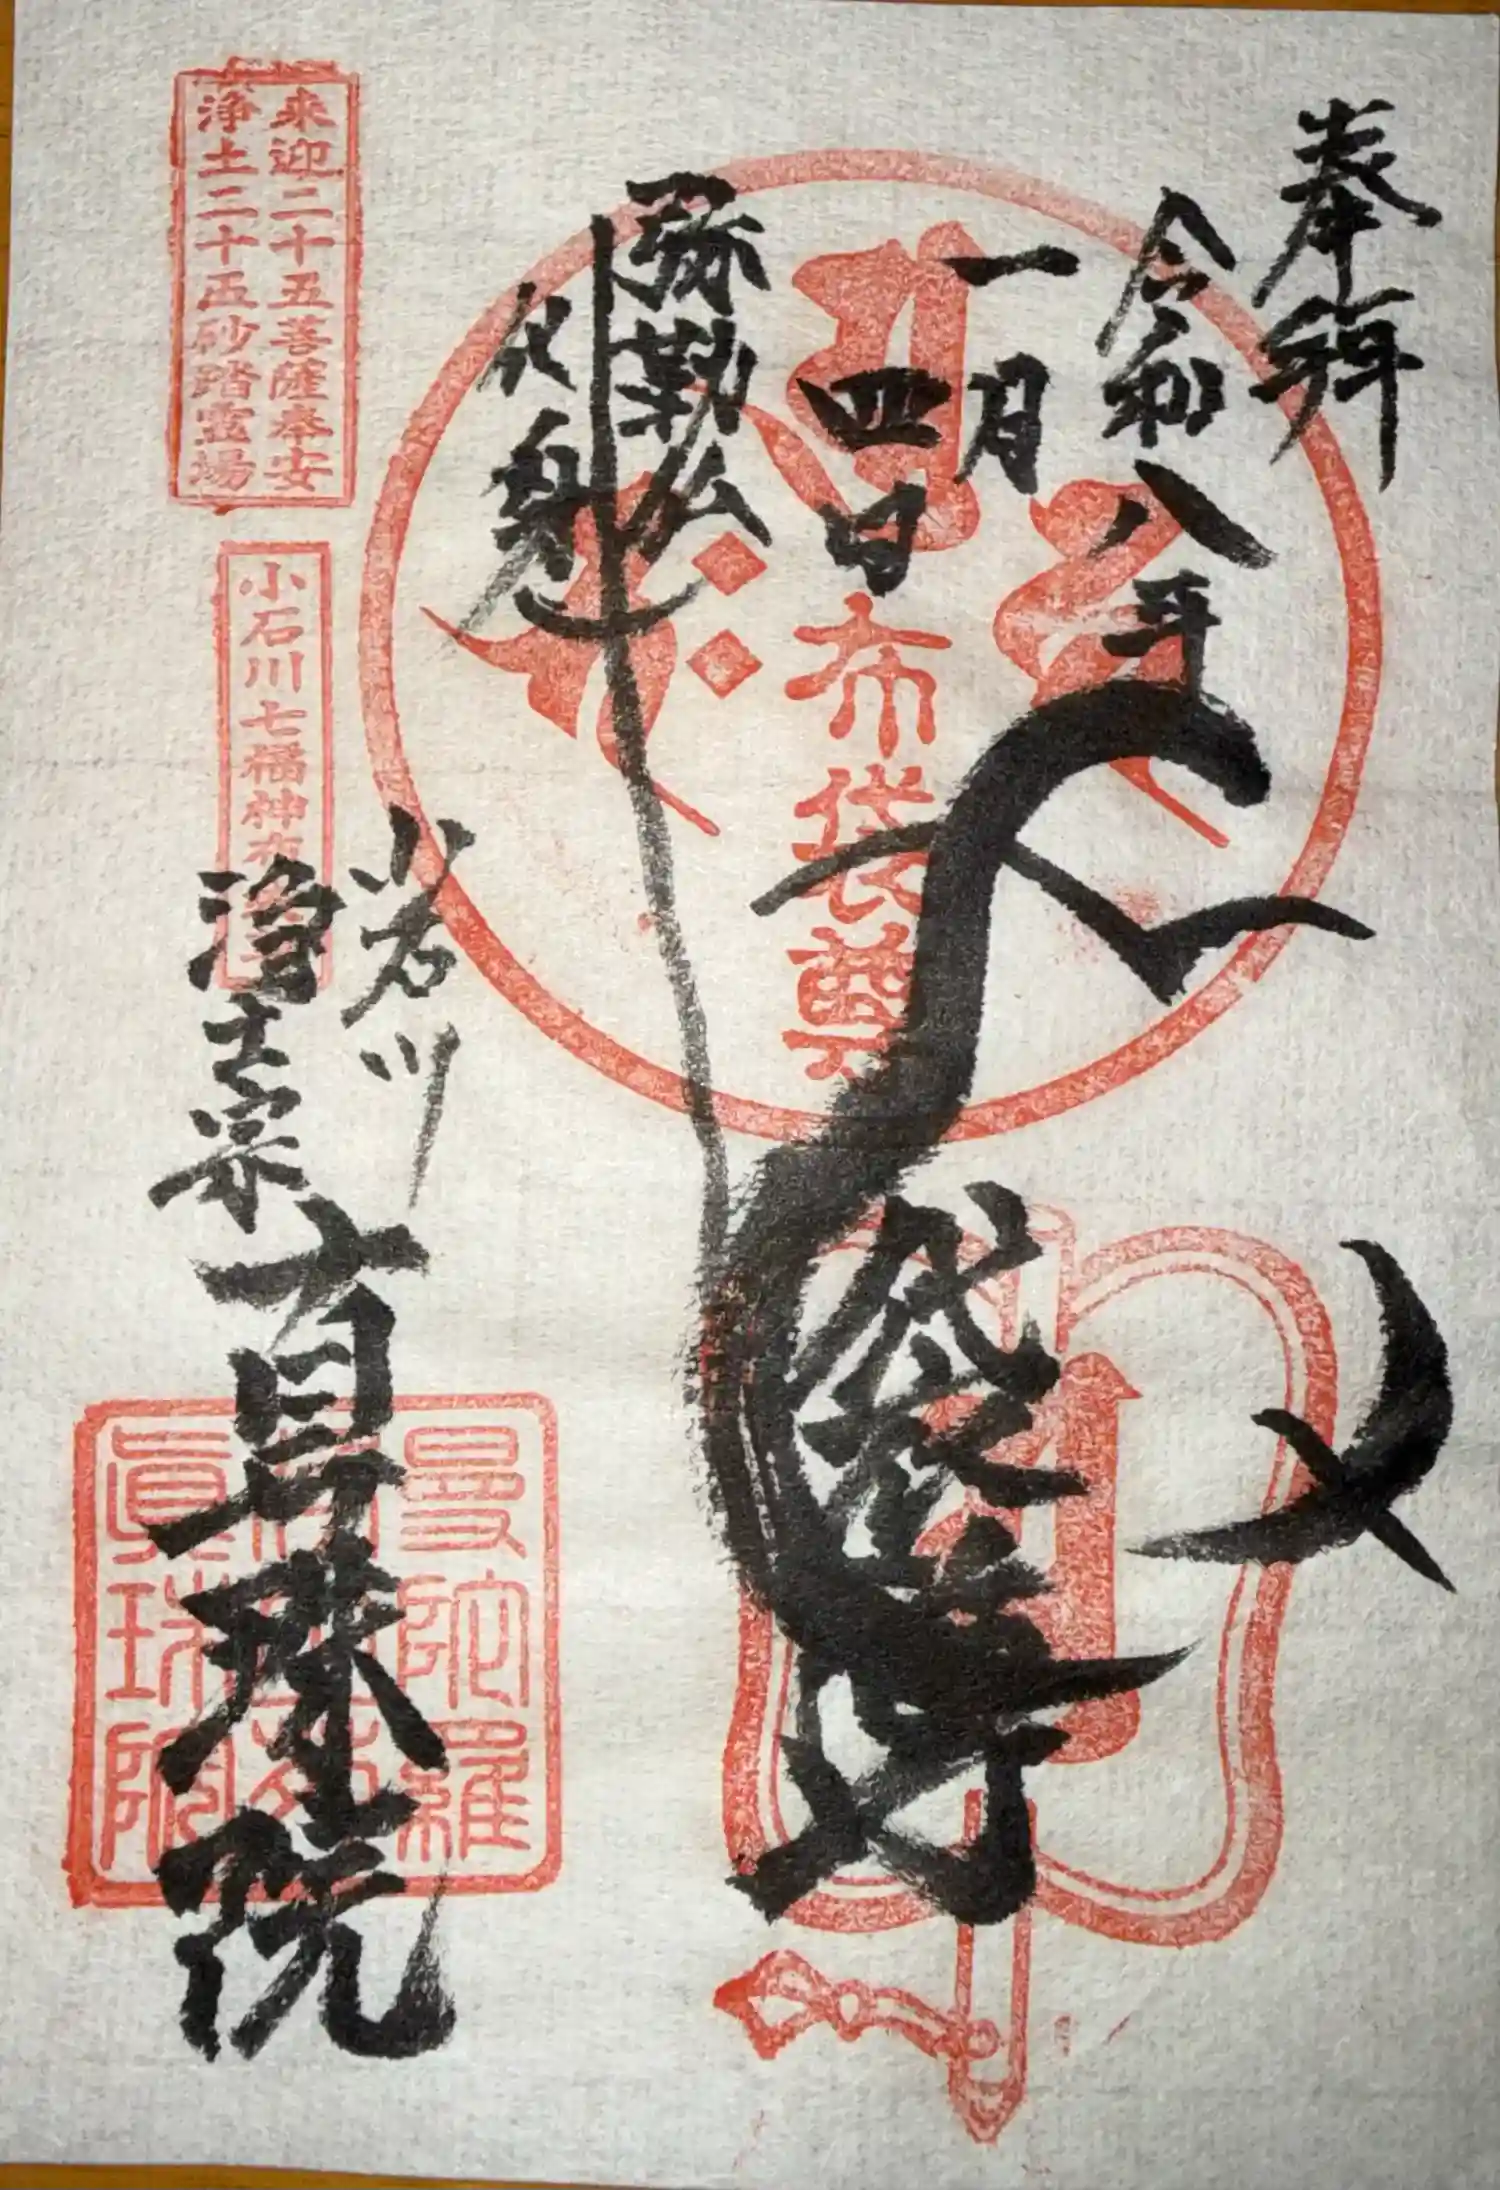 奉拝
令和八年
一月
四日
弥勒仏
化身
布袋尊
布袋尊
小石川
浄土宗
真珠院
来迎二十五菩薩奉安
浄土二十五砂踏霊場
小石川七福神布
曼陀羅
眞珠院